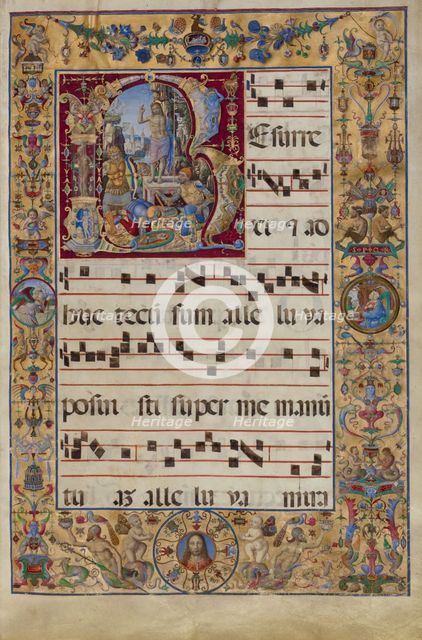 Resurre
xi ⁊ ad
huc tecū sum alle lu ya
posui sti super me manū
tu as alle lu ya mira
Heritage
Heritage
Heritage
Heritage